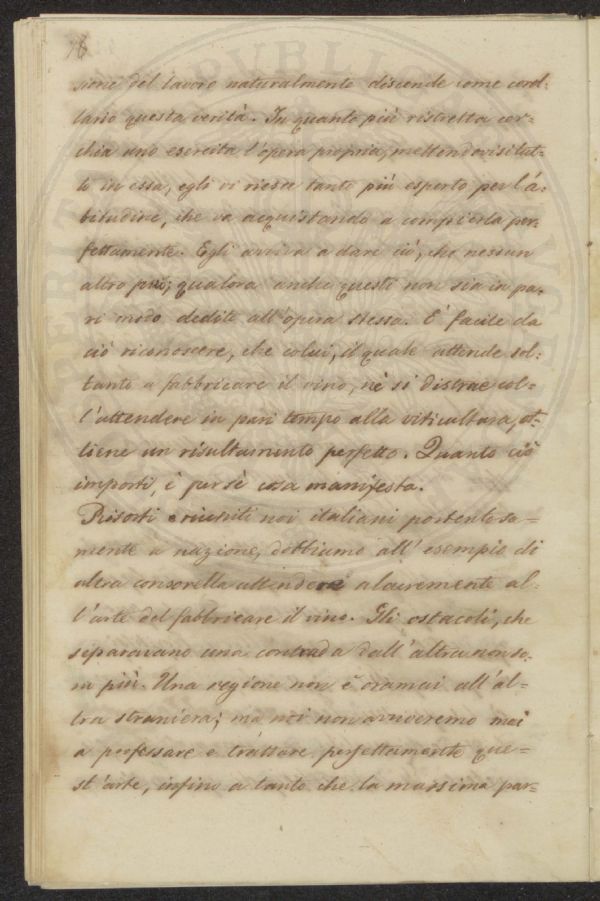 76
sione del lavoro naturalmente discende come corol-
lario questa verità. In quanto più ristretta cer-
chia uno esercita l'opera propria, mettendovisi tut-
to in essa, egli vi riesce tanto più esperto per l'a-
bitudine, che va acquistando a compierla per-
fettamente. Egli arriva a dare ciò, che nessun
altro può; qualora anche questi non sia in pa-
ri modo dedito all'opera stessa. E' facile da
ciò riconoscere, che colui, il quale attende sol-
tanto a fabbricare il vino, nè si distrae col-
l'attendere in pari tempo alla viticultura, ot-
tiene un risultamento perfetto. Quanto ciò
importi, è per sè cosa manifesta.
Risorti e riuniti noi italiani portentosa-
mente a nazione, dobbiamo all'esempio di
altra consorella attendere alacremente al-
l'arte del fabbricare il vino. Gli ostacoli, che
separavano una contrada dall'altra non so-
no più. Una regione non è oramai all'al-
tra straniera; ma noi non arriveremo mai
a professare e trattare perfettamente que-
st'arte, infino a tanto che la massima par-